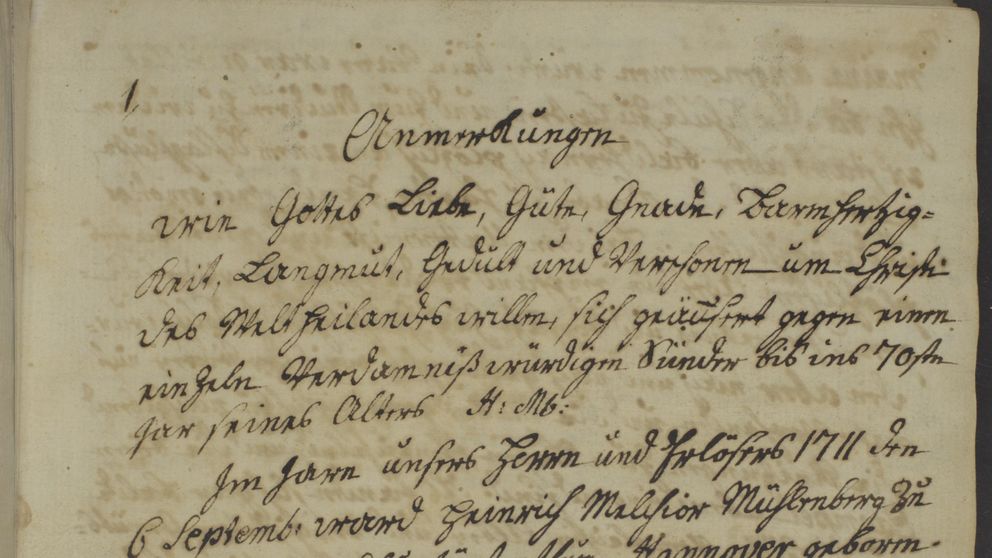 1,
Anmerkungen
wie Gottes Liebe, Güte, Gnade, Barmhertzig=
keit, Langmut, Gedult und Verschonen um Christi
des Weltheilandes willen, sich geäussert gegen einen
einzeln Verdamniß würdigen Sünder bis ins 70ste
Jar seines Alters H: Mb:
Im Jare unsers Herrn und Erlösers 1711 den
6 Septemb: ward Heinrich Melchior Mühlenberg zu
Hannover geboren.